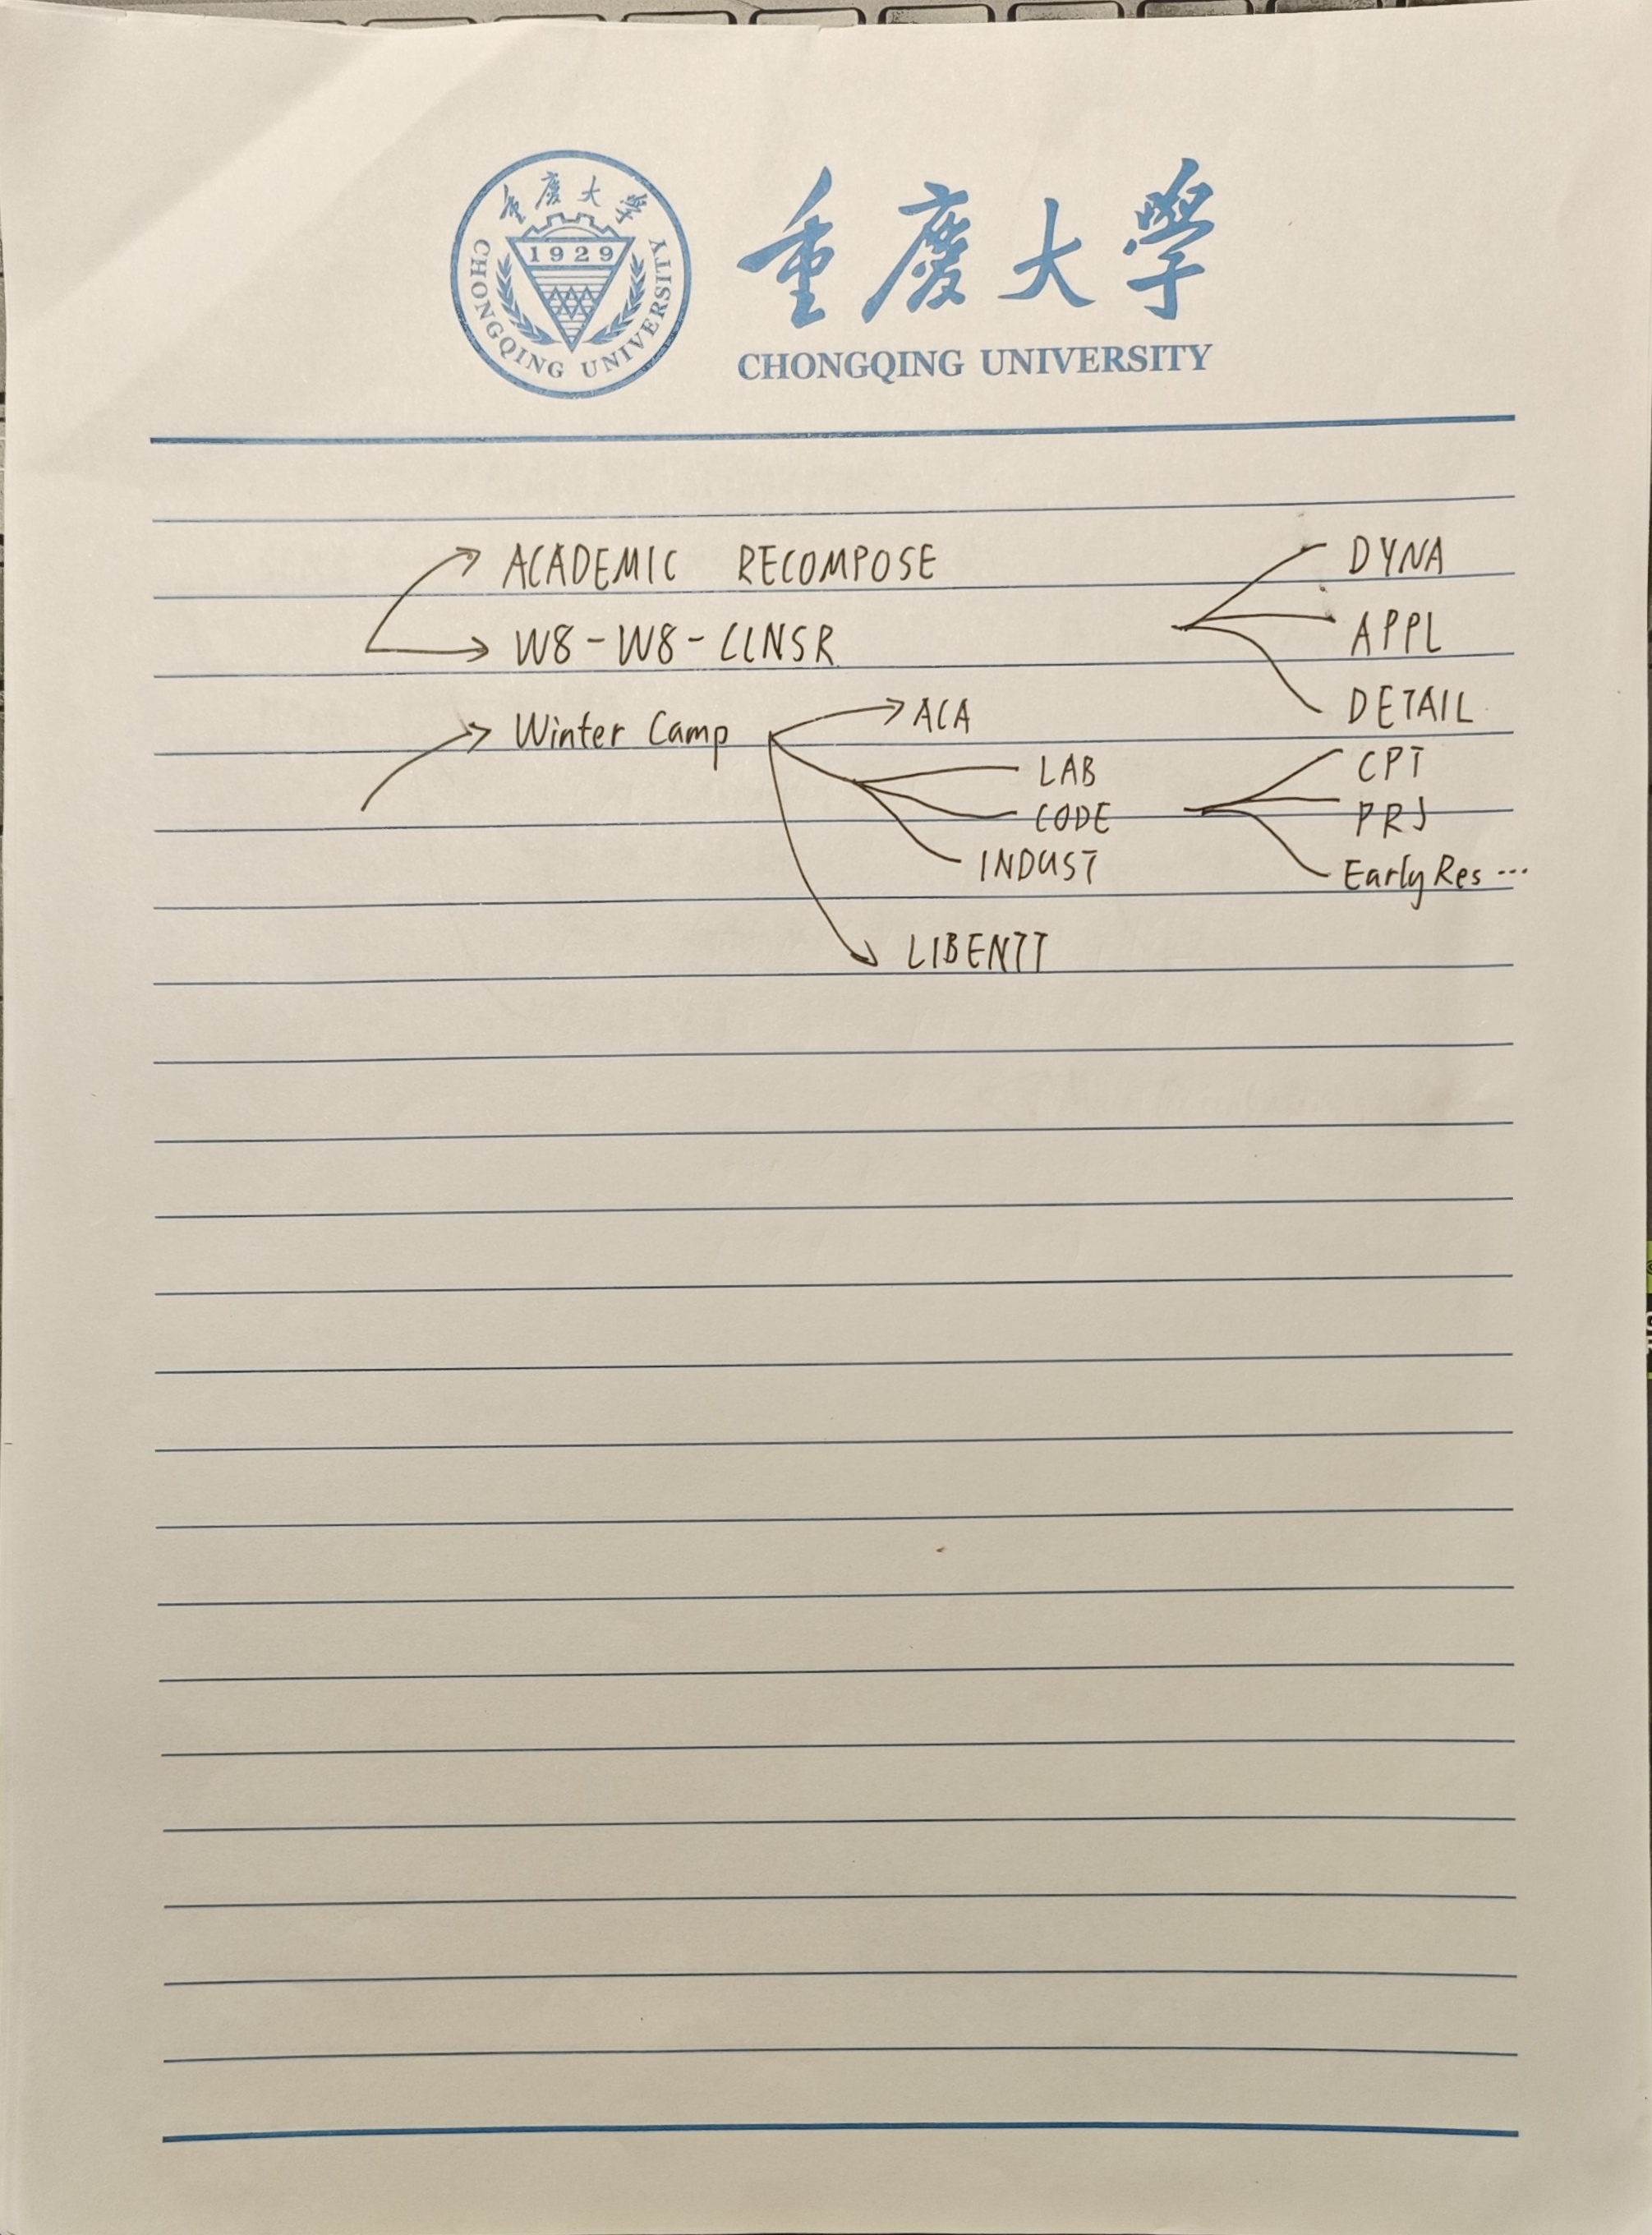 重慶大學
1929
CHONGQING UNIVERSITY
重慶大學
CHONGQING UNIVERSITY
ACADEMIC RECOMPOSE
W8-W8-CLNSR
Winter Camp
ACA
LAB
CODE
INDUST
LIBENTT
DYNA
APPL
DETAIL
CPT
PRJ
Early Res ...